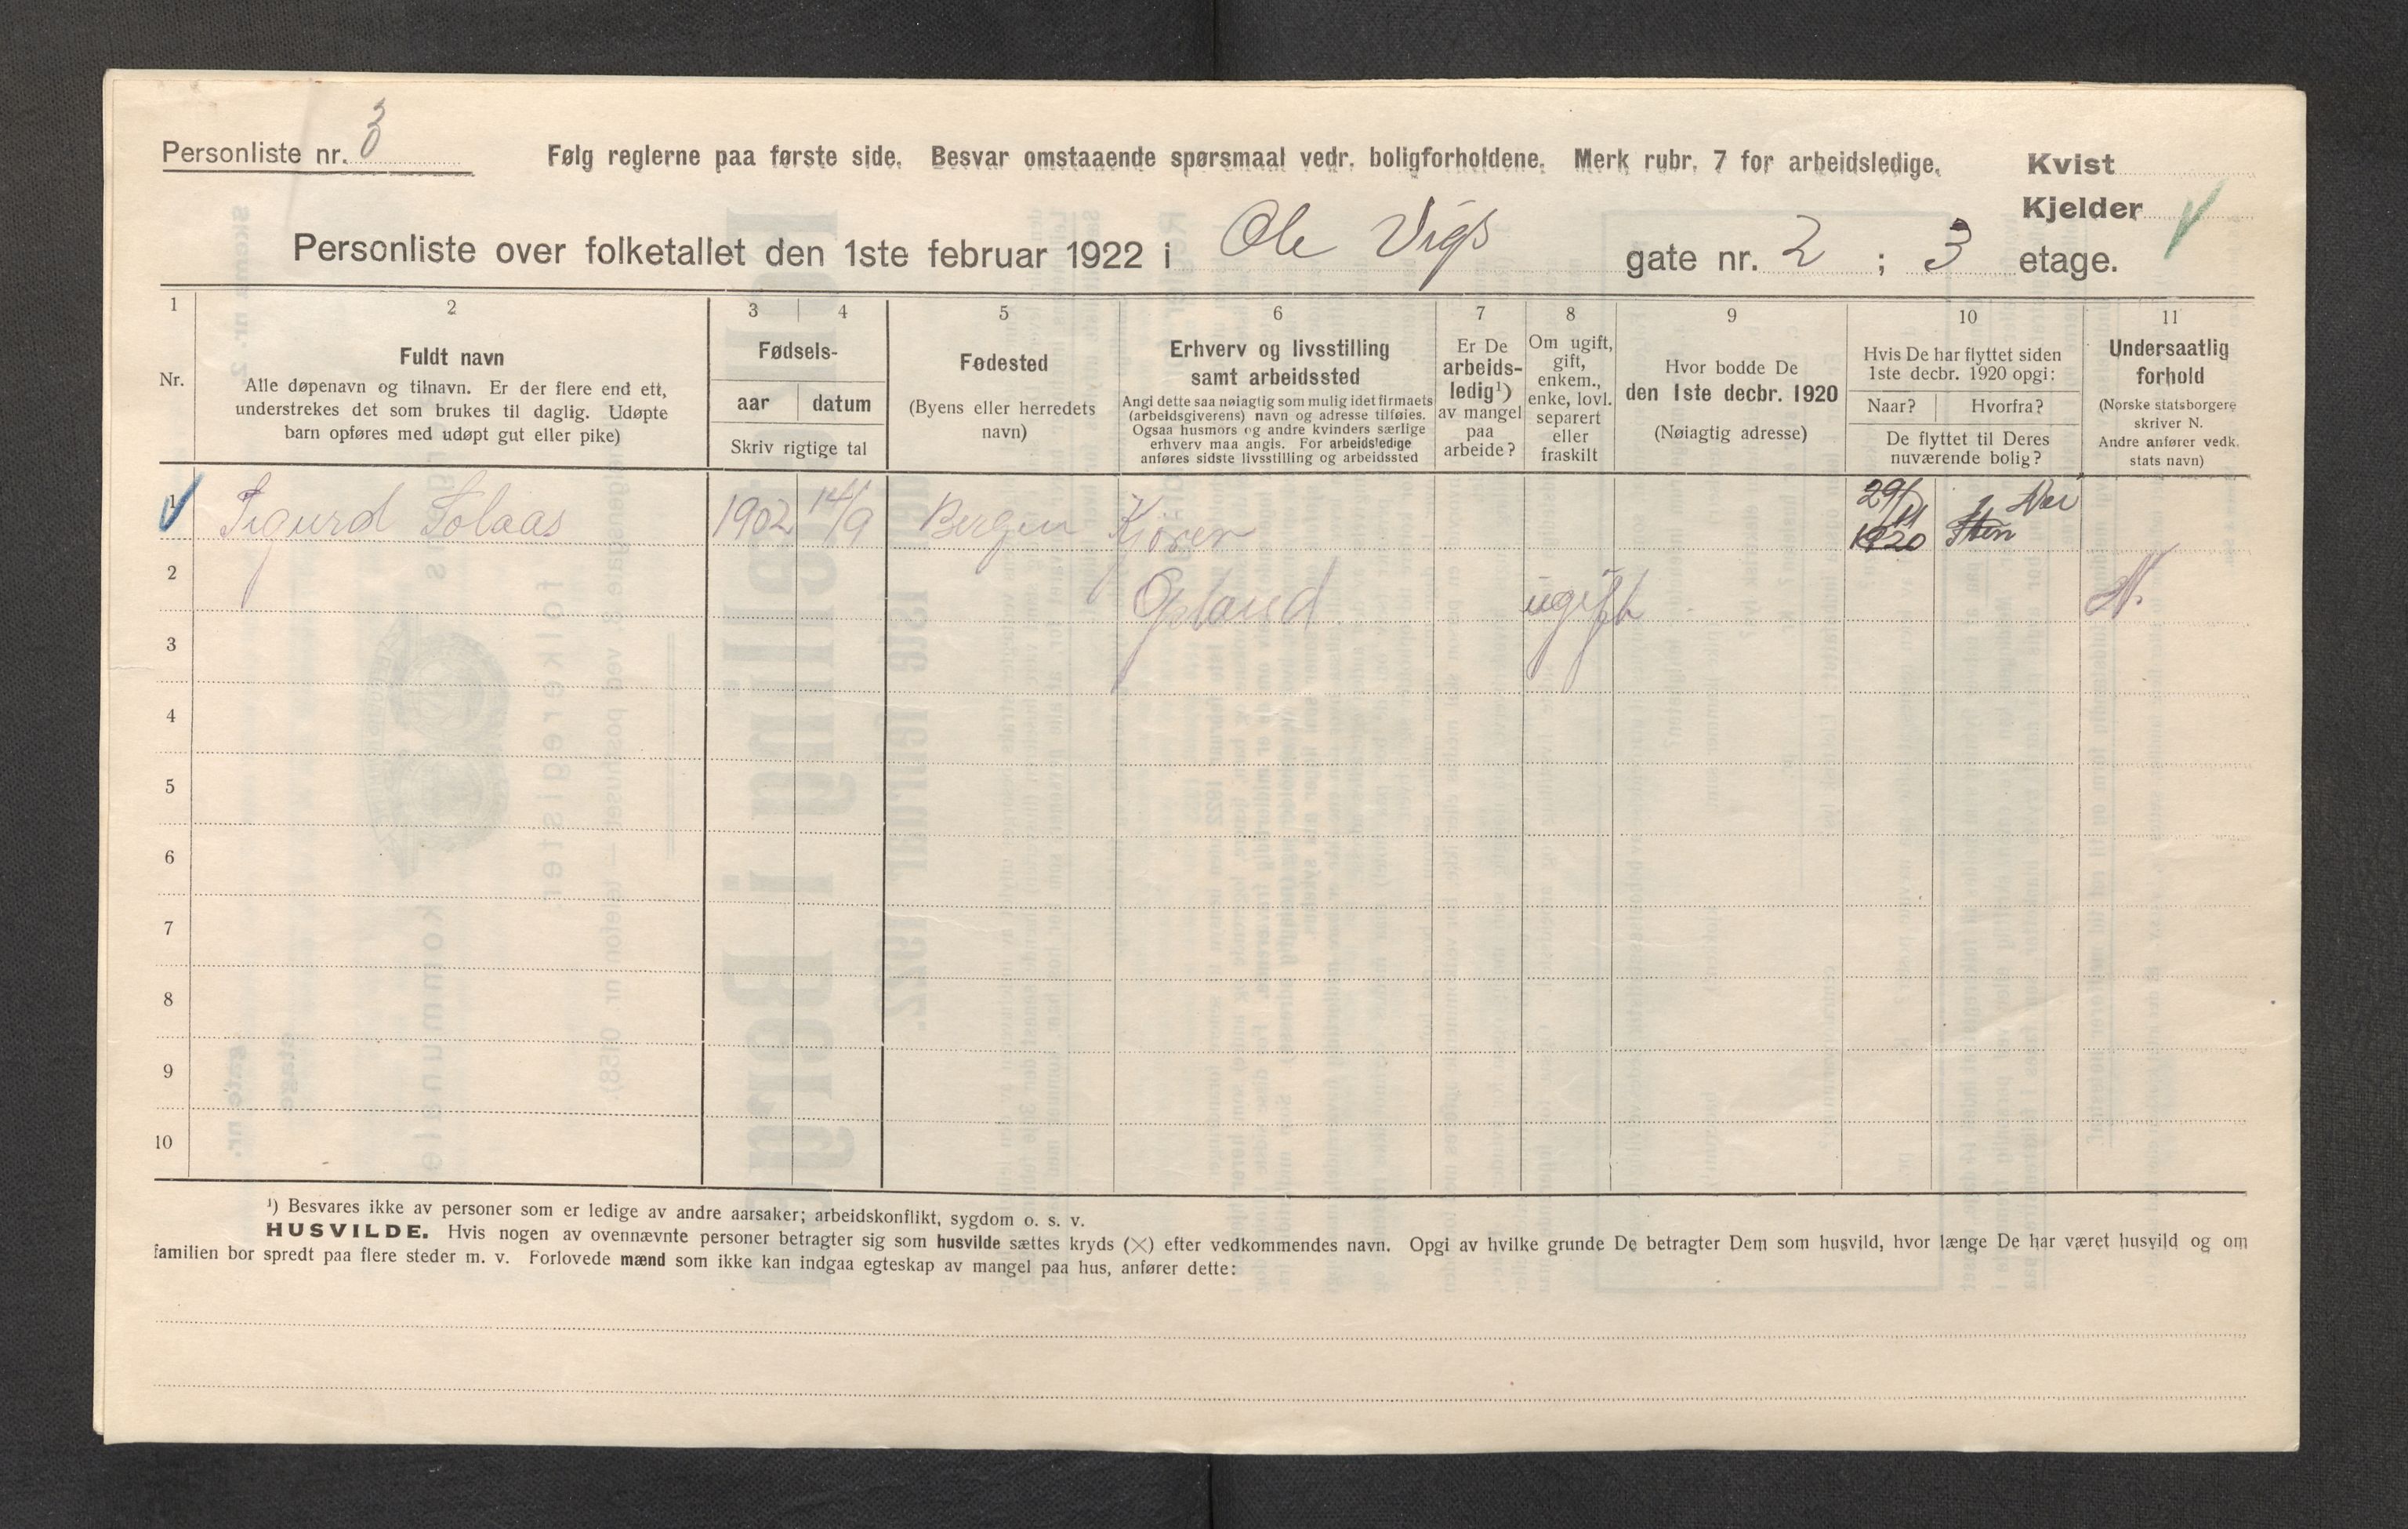 Personliste nr. 3
Følg reglerne paa første side. Besvar omstaaende spørsmaal vedr. boligforholdene. Merk rubr. 7 for arbeidsledige.
Kvist
Kjelder
Personliste over folketallet den 1ste februar 1922 i Ole Vigs gate nr. 2 ; 3 etage.
1 2 3 4 5 6 7 8 9 10 11
Nr.
Fuldt navn
Alle døpenavn og tilnavn. Er der flere end ett,
understrekes det som brukes til daglig. Udøpte
barn opføres med udøpt gut eller pike)
Fødsels-
aar datum
Skriv rigtige tal
Fødested
(Byens eller herredets
navn)
Erhverv og livsstilling
samt arbeidssted
Angi dette saa nøiagtig som mulig idet firmaets
(arbeidsgiverens) navn og adresse tilføies.
Ogsaa husmors og andre kvinders særlige
erhverv maa angis. For arbeidsledige
anføres sidste livsstilling og arbeidssted
Er De
arbeids-
ledig¹)
av mangel
paa
arbeide?
Om ugift,
gift,
enkem.,
enke, lovl.
separert
eller
fraskilt
Hvor bodde De
den 1ste decbr. 1920
(Nøiagtig adresse)
Hvis De har flyttet siden
1ste decbr. 1920 opgi:
Naar? Hvorfra?
De flyttet til Deres
nuværende bolig?
Undersaatlig
forhold
(Norske statsborgere
skriver N.
Andre anfører vedk.
stats navn)
1 Sigurd Solaas 1902 14/9 Bergen Kjører 29/11 1920
2 Opland ugift N.
3
4
5
6
7
8
9
10
¹) Besvares ikke av personer som er ledige av andre aarsaker; arbeidskonflikt, sygdom o. s. v.
HUSVILDE. Hvis nogen av ovennævnte personer betragter sig som husvilde sættes kryds (×) efter vedkommendes navn. Opgi av hvilke grunde De betragter Dem som husvild, hvor længe De har været husvild og om
familien bor spredt paa flere steder m. v. Forlovede mænd som ikke kan indgaa egteskap av mangel paa hus, anfører dette: